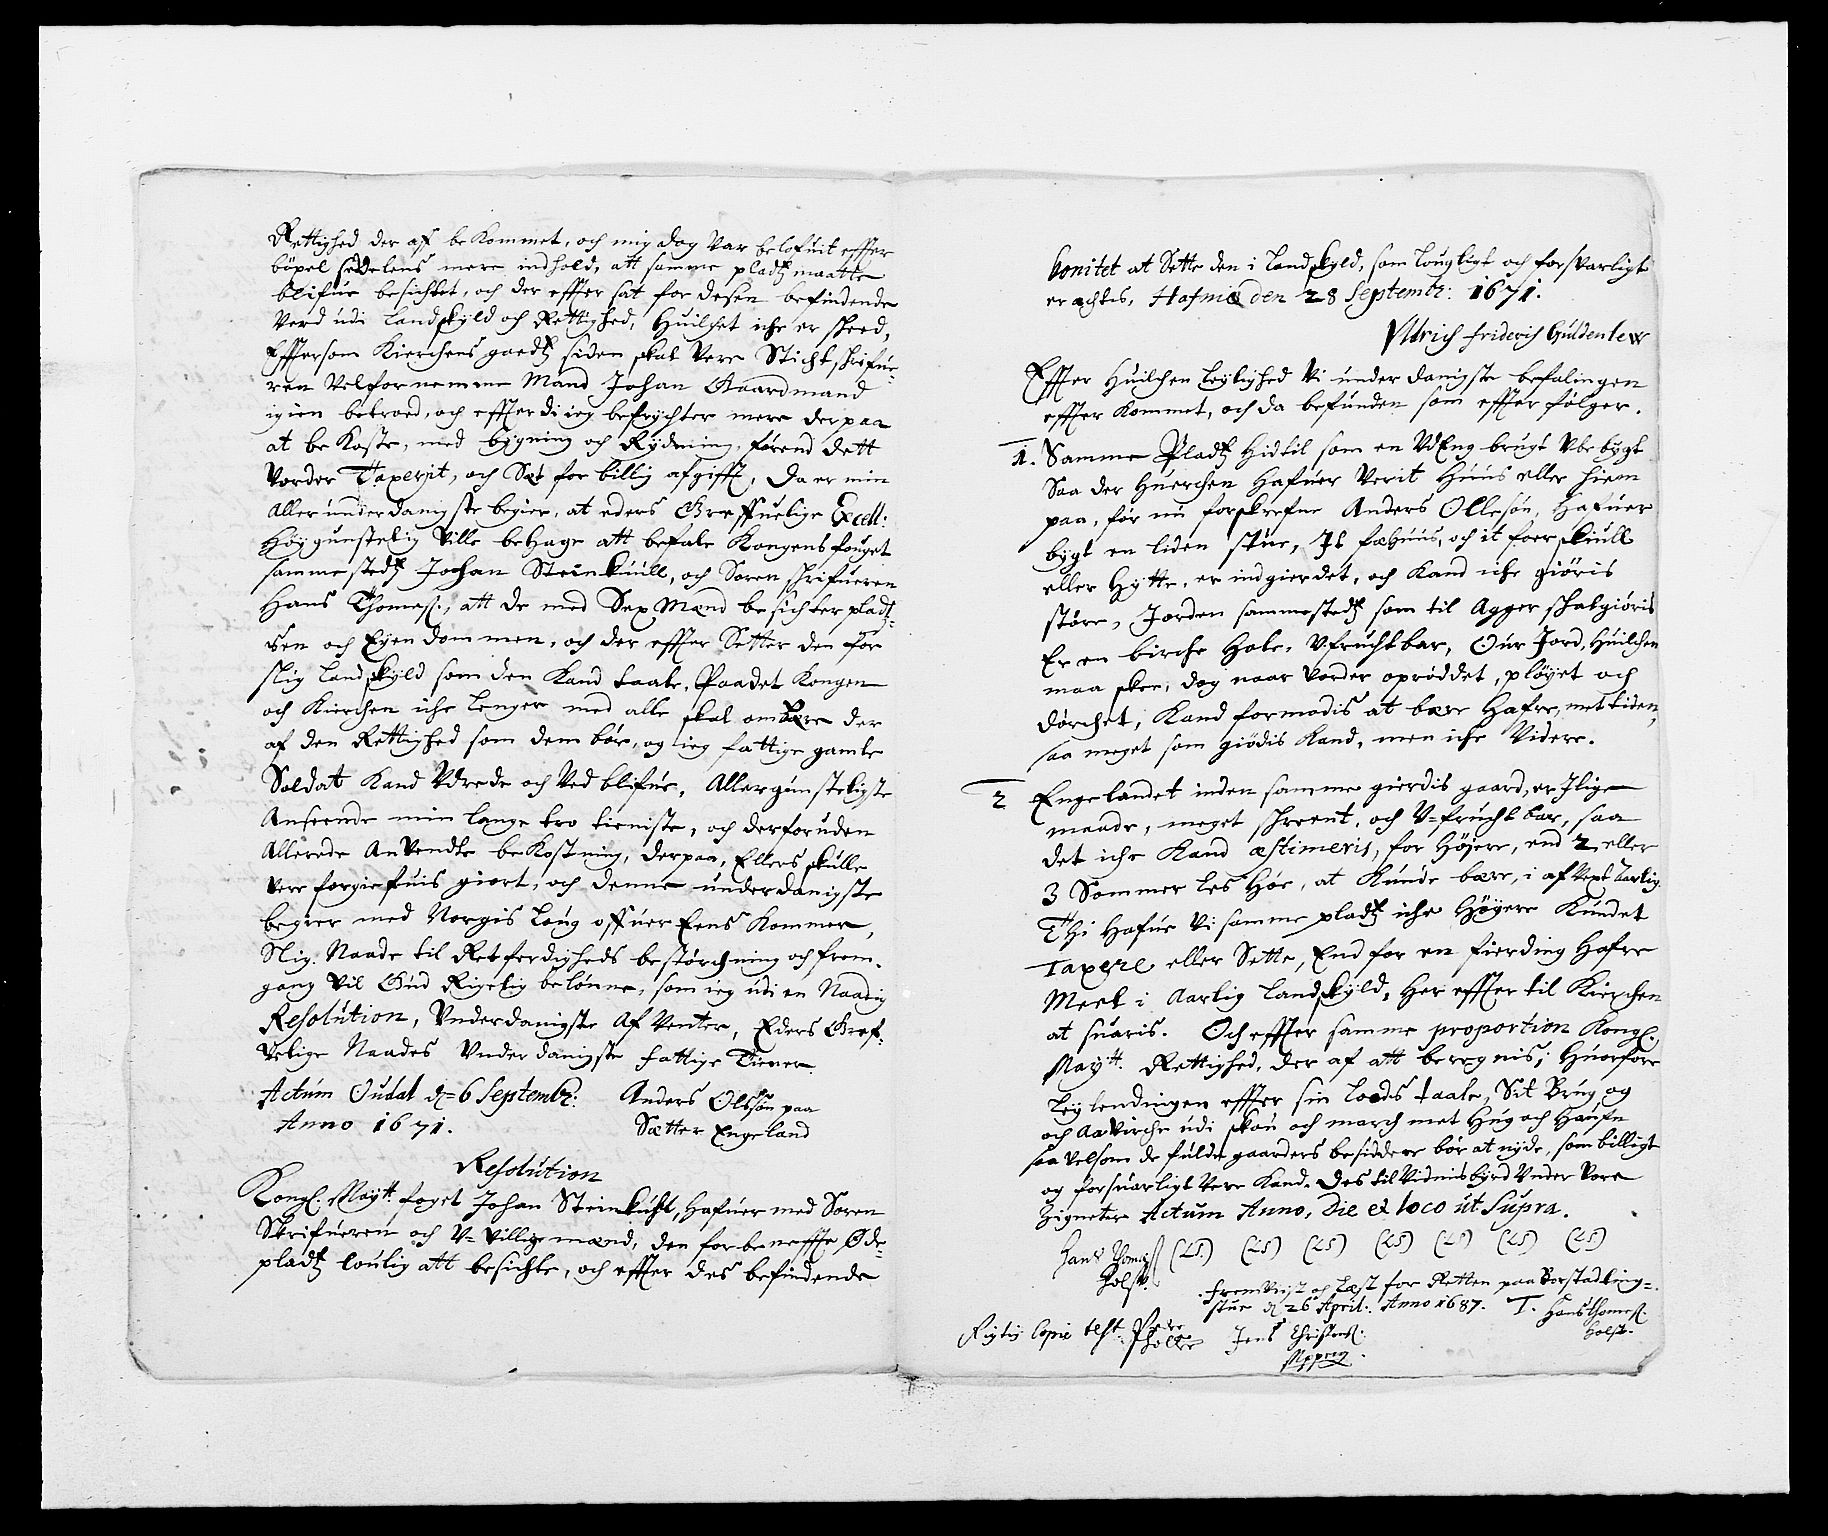 Rettighed der af bekommet, och mig dog var belofuit effter
böxel sedelens mere indhold, att samme pladtz maatte
blifue besichtet, och der effter sat for desen befindende
Verd udi Landskyld och Rettighed, Huilchet iche er skeed,
Efftersom Kierchens goedtz siden skal vere Sticht skrifue-
ren Velfornemme Mand Johan Gaardmand
igien betroed, och effterdi ieg befrychter mere derpaa
at bekoste, med bygning och Rydning, förend dett
vorder Taxerit, och Sat for billig afgifft, Da er min
Allerunderdanigste begier, at eders Greffuelige Excell:
Höygunstelig ville behage att befale Kongens fouget
sammestedtz Johan Steinkuull, och Soren skrifueren
Hans Thomess:, att de med Sex Mænd besichter pladt-
sen och Eyendommen, och der effter Setter den for
slig Landskyld som den Kand taale, Paadet Kongen
och Kierchen iche lenger med alle skal ombære der
af den Rettighed som dem bör, og ieg fattige gamle
Soldat Kand Udrede och Ved blifue, Allergunsteligste
Anseende min lange tro tieniste, och derforuden
Allerede Anvendte bekostning, derpaa, Ellers skulle
vere forgiefuis giort, och denne underdanigste
begier med Norgis Loug offuer Eens Kommer,
Slig Naade til Retferdigheds bestörchning och frem-
gang vil Gud Rigelig belönne, som ieg udi en Naadig
Resolution, Underdanigste Af Venter, Eders Gref-
velige Naades Underdanigste fattige Tiener
Actum Oudal d= 6 Septembr: Anders Olssön paa
Anno 1671. Sætter Engeland
Resolution
Kongl: Mayt: foget Johan Steinkuhl, Hafuer med Soren
Skrifueren och U=villige mænd, den forbeneffte Öde-
pladtz loulig att besichte, och effter des befindende
bonitet at Sette den i Landskyld, som lougligt och forsvarligt
erachtes, Hafniæ den 28 Septembr: 1671.
Uldrich friderich Güldenlew
Effter Huilchen leylighed Vi underdanigste befalingen
effter kommet, och da befunden som effter fölger.
1. Samme Pladtz hidtil som en UdEng brugt Ubebygt
Saa der huerchen hafuer verit Huus eller hiem
paa, för nu forskrefne Anders Ollesön, hafuer
bygt en liden stue, It fæhuus, och it foer skiull
eller Hytte, er indgierdet, och Kand iche giöris
störe, Jorden sammestedtz som til Agger skal giöris
Er en birche Holt, Ufruchtbar, Our Jord, Huilchen
maa skee, dog naar vorder oprödet, plöyet och
dörchet, Kand formodis at bære Hafre, met tiden,
saa meget som giödis kand, men iche Videre.
2 Engelandet inden samme gierdis gaard, er Ilige
maade, meget skreent, och U=fruchtbar, saa
det iche Kand æstimeris, for Höyere, end 2 eller
3 Sommer les Höe, at Kunde bære, i af Vext aarlig.
Thi Hafue Vi samme pladtz iche Höyere Kundet
Taxere eller Sette, End for en fierding Hafre
Meel i Aarlig Landskyld, her effter til Kierchen
at suaris. Och effter samme proportion Kongl:
Mayt: Rettighed, der af att beregnis, Huorfore
Leylendingen effter sin lods taale, Sit Brug og
och Aavirche udi skou och march met Hug och Haufn
saa velsom de fulde gaarders besiddere bör at nyde, som billigt
og forsuarligt Vere Kand. Des til Vidnisbyrd Under Vore
Zigneter Actum Anno, Die et loco ut Supra.
Hans Thomess (LS.) (LS) (LS) (LS) (LS) (LS) (LS)
Holst.
fremvist och Læst for Retten paa Borstad ting=
stue d 26 April: Anno 1687. T. Hans Thomess:
Holst.
Rigtig Copie test Jens Christens: